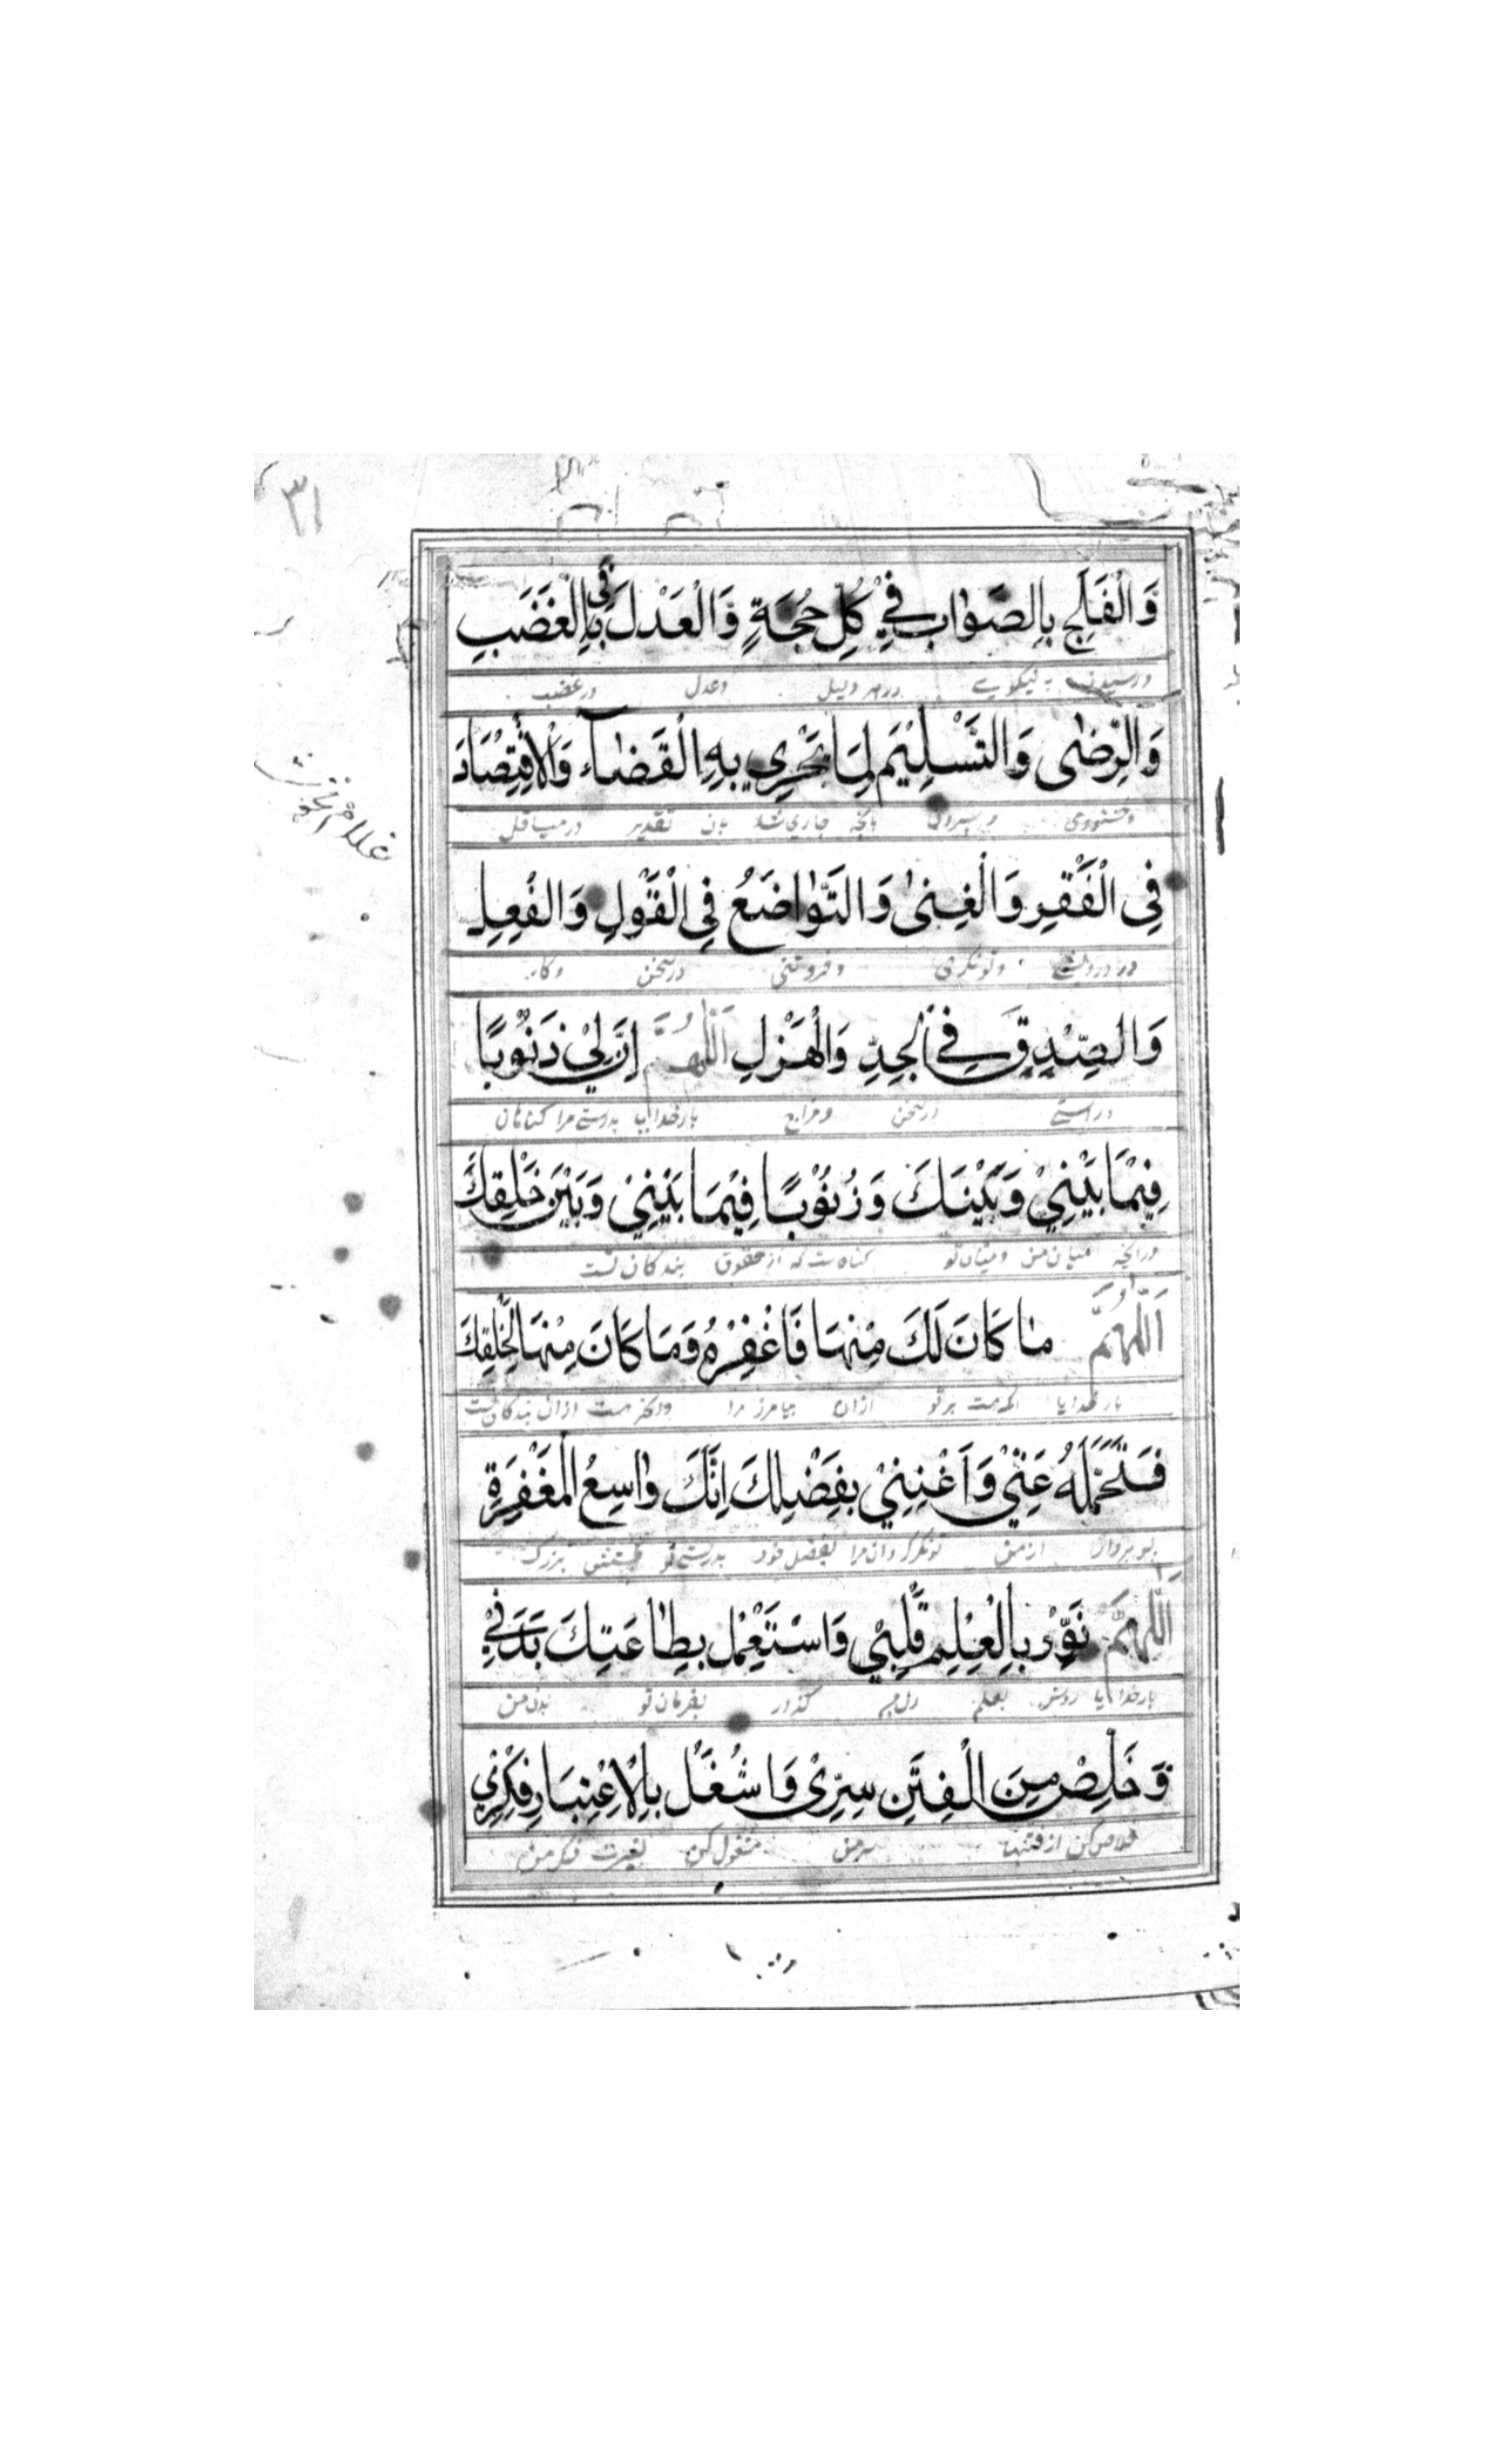 ۳۱
وَالْفَلَجِ بِالصَّوٰابِ فِيْ كُلِّ حُجَّةٍ وَالْعَدْلَ فِي الْغَضَبِ
به نیکویے در هر دلیل وعدل در غضب
وَالرِّضٰى وَالتَّسْلِيْمَ لِمَا يَجْرِي بِهِ الْقَضٰاءُ وَالْاِقْتِصٰادَ
وخشنودی بانچه جاری شد بان تقدیر
فِي الْفَقْرِ وَالْغِنىٰ وَالتَّوٰاضُعَ فِي الْقَوْلِ وَالْفِعْلِ
در درویشے وتونکری وفروتنی در سخن وکار
وَالصِّدْقَ فِي الْجِدِّ وَالْهَزْلِ اَللّٰهُمَّ اِنَّ لِيْ ذُنُوبًا
در راستے در سخن ومزاح بار خدایا بدرستے مرا کناهان
فِيْمَا بَيْنِيْ وَبَيْنَكَ وَذُنُوْبًا فِيْمَا بَيْنِيْ وَبَيْنَ خَلْقِكَ
درانچه میان من ومیان تو کناهست که از حقوق بندکان تست
اَللّٰهُمَّ مٰا كَانَ لَكَ مِنْهَا فَاغْفِرْهُ وَمَا كَانَ مِنْهَا لِخَلْقِكَ
بار خدایا انچه هست بر تو ازان بیامرز مرا وانچه هست ازان بندکان تست
فَتَحَمَّلْهُ عَنِّيْ وَاَغْنِنِيْ بِفَضْلِكَ اِنَّكَ وٰاسِعُ الْمَغْفِرَةِ
از من تونکر کردان مرا بفضل خود بدرستے تو بزرک
اَللّٰهُمَّ نَوِّرْ بِالْعِلْمِ قَلْبِيْ وَاسْتَعْمِلْ بِطٰاعَتِكَ بَدَنِيْ
بار خدایا روشن بعلم دل من بفرمان تو بدن من
وَخَلِّصْ مِنَ الْفِتَنِ سِرِّىْ وَاشْغَلْ بِالْاِعْتِبَارِ فِكْرِيْ
خلاص کن از فتنها سر من مشغول کن بعبرت فکر من